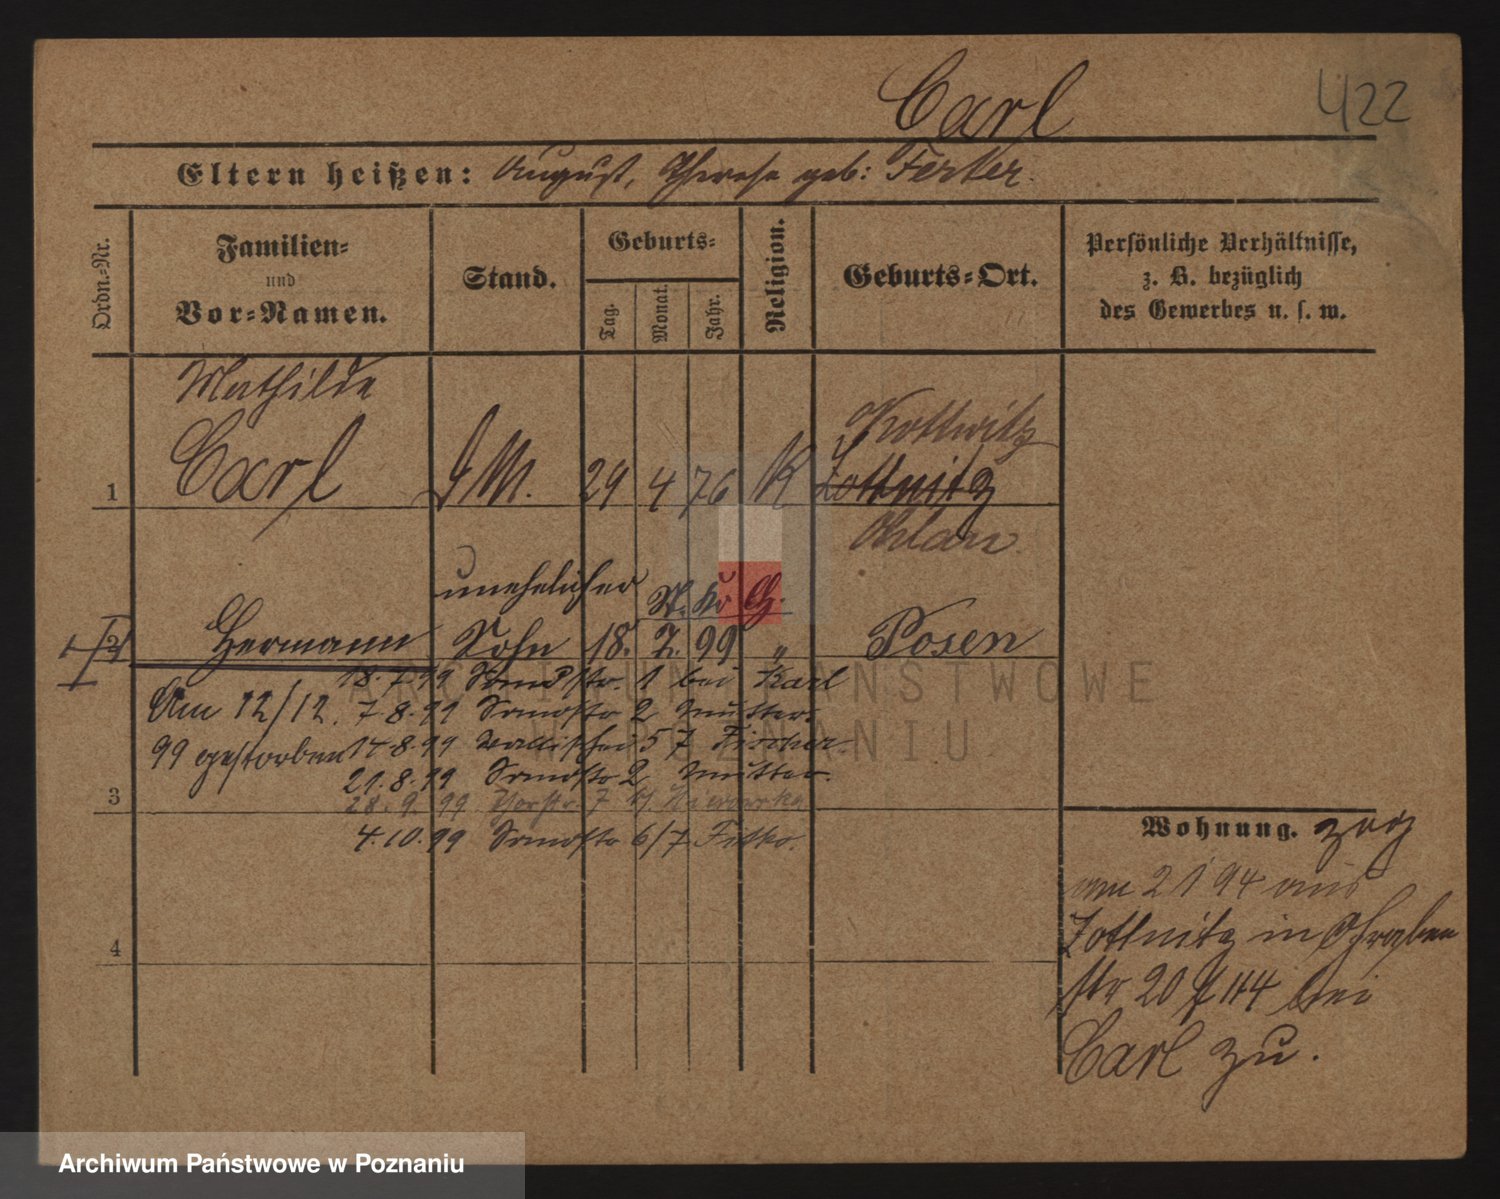 Carl
422
Eltern heißen: August, Therese geb: Ferker.
Ordn.-Nr.
Familien-
und
Vor-Namen.
Stand.
Geburts-
Tag.
Monat.
Jahr.
Religion.
Geburts-Ort.
Persönliche Verhältnisse,
z. B. bezüglich
des Gewerbes u. s. w.
Mathilde
Kottwitz
1 Carl 29 4 76 K Zottwitz
Ohlau
unehelicher
2 Hermann Sohn 18. 7. 99 " Posen
18.7.99 Sandstr. 1 bei Karl
Am 12/12. 7.8.99 Sandstr 2 Mutter.
99 gestorben 17.8.99 Wallischei 57 Fischer.
21.8.99 Sandstr 2 Mutter.
3 28.9.99 7
4.10.99 Sandstr 6/7
Wohnung. zog
am 2 1 94 aus
Zottwitz in Graben
str 20 bei
Carl zu.
4
ARCHIWUM PAŃSTWOWE
W POZNANIU
Archiwum Państwowe w Poznaniu